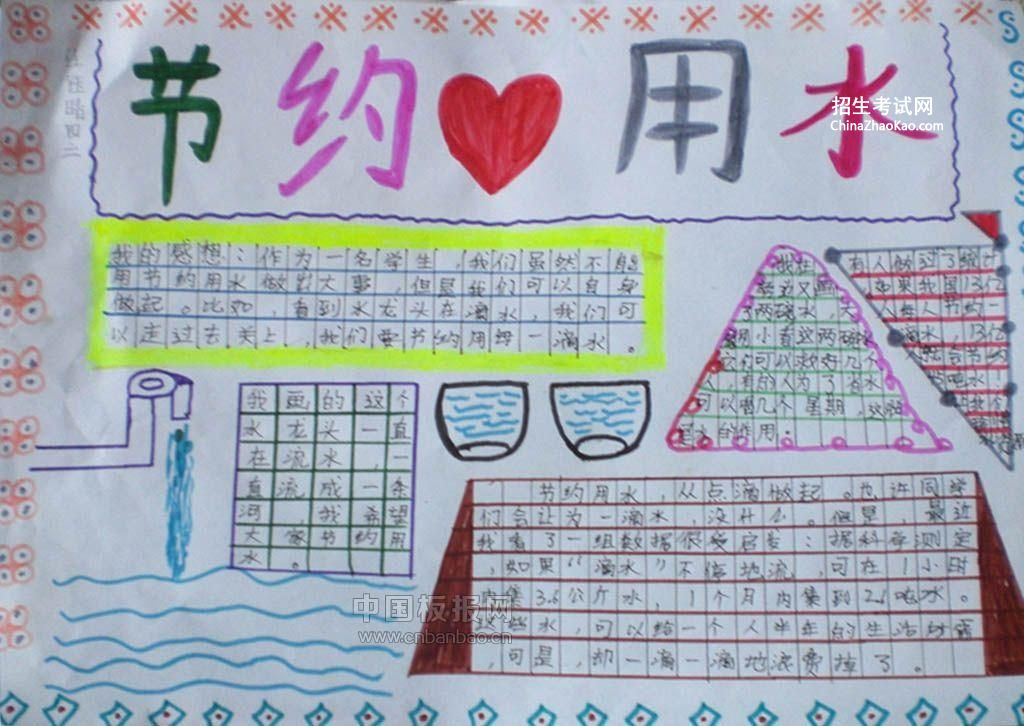 节约用水
招生考试网
ChinaZhaoKao.com
我的感想：作为一名学生，我们虽然不能
用节约用水做出大事，但是我们可以自身
做起。比如，看到水龙头在滴水，我们可
以走过去关上，我们要节约用每一滴水。
我画的这个
水龙头一直
在流水，一
直流成一条
河，我希望
大家节约用
水。
我在
这边又画
了两碗水，
小看这两碗
可以救好几个
人，有的人为了有水
可以喝几个星期，这就
是水的作用。
有人做过了统计
。如果我国13亿
每人节约一
滴水，13亿
节约用水，从点滴做起。也许同学
们会认为一滴水，没什么。但是，最近
我看了一组数据很受启发：据科学测定
，如果“滴水”不停地流，可在1小时
内集3.6公斤水，1个月内集到2.6吨水。
这些水，可以给一个人半年的生活所需
，可是，却一滴一滴地浪费掉了。
中国板报网
www.cnbanbao.cn